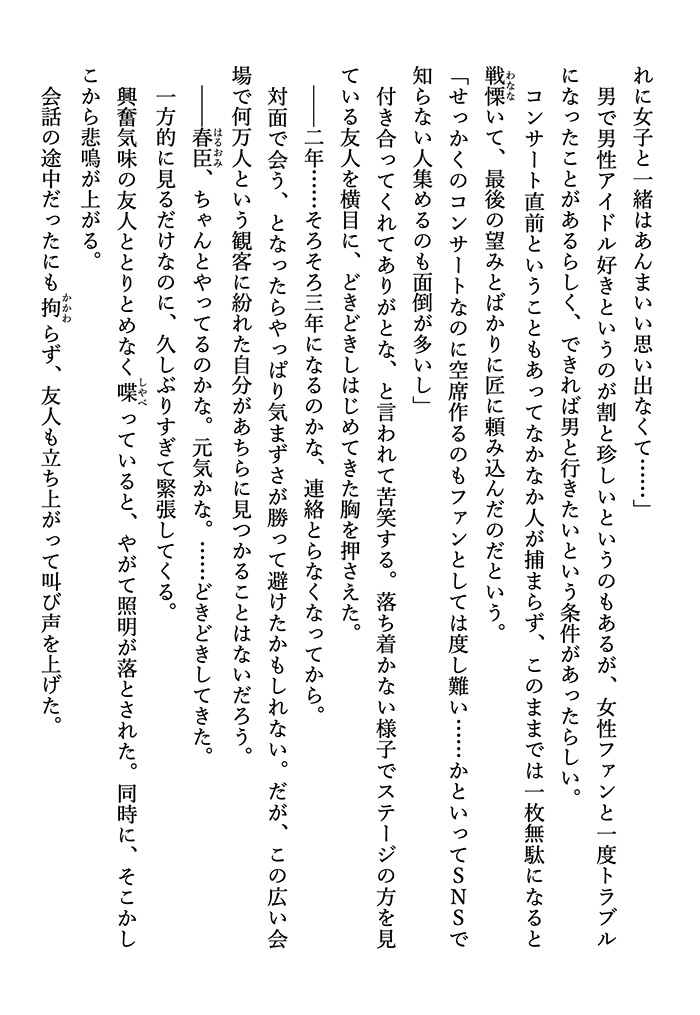 れに女子と一緒はあんまいい思い出なくて……」
　男で男性アイドル好きというのが割と珍しいというのもあるが、女性ファンと一度トラブル
になったことがあるらしく、できれば男と行きたいという条件があったらしい。
　コンサート直前ということもあってなかなか人が捕まらず、このままでは一枚無駄になると
戦慄いて、最後の望みとばかりに匠に頼み込んだのだという。
わなな
「せっかくのコンサートなのに空席作るのもファンとしては度し難い……かといってＳＮＳで
知らない人集めるのも面倒が多いし」
　付き合ってくれてありがとな、と言われて苦笑する。落ち着かない様子でステージの方を見
ている友人を横目に、どきどきしはじめてきた胸を押さえた。
　――二年……そろそろ三年になるのかな、連絡とらなくなってから。
　対面で会う、となったらやっぱり気まずさが勝って避けたかもしれない。だが、この広い会
場で何万人という観客に紛れた自分があちらに見つかることはないだろう。
　――春臣、ちゃんとやってるのかな。元気かな。……どきどきしてきた。
はるおみ
　一方的に見るだけなのに、久しぶりすぎて緊張してくる。
　興奮気味の友人ととりとめなく喋っていると、やがて照明が落とされた。同時に、そこかし
しゃべ
こから悲鳴が上がる。
　会話の途中だったにも拘らず、友人も立ち上がって叫び声を上げた。
かかわ